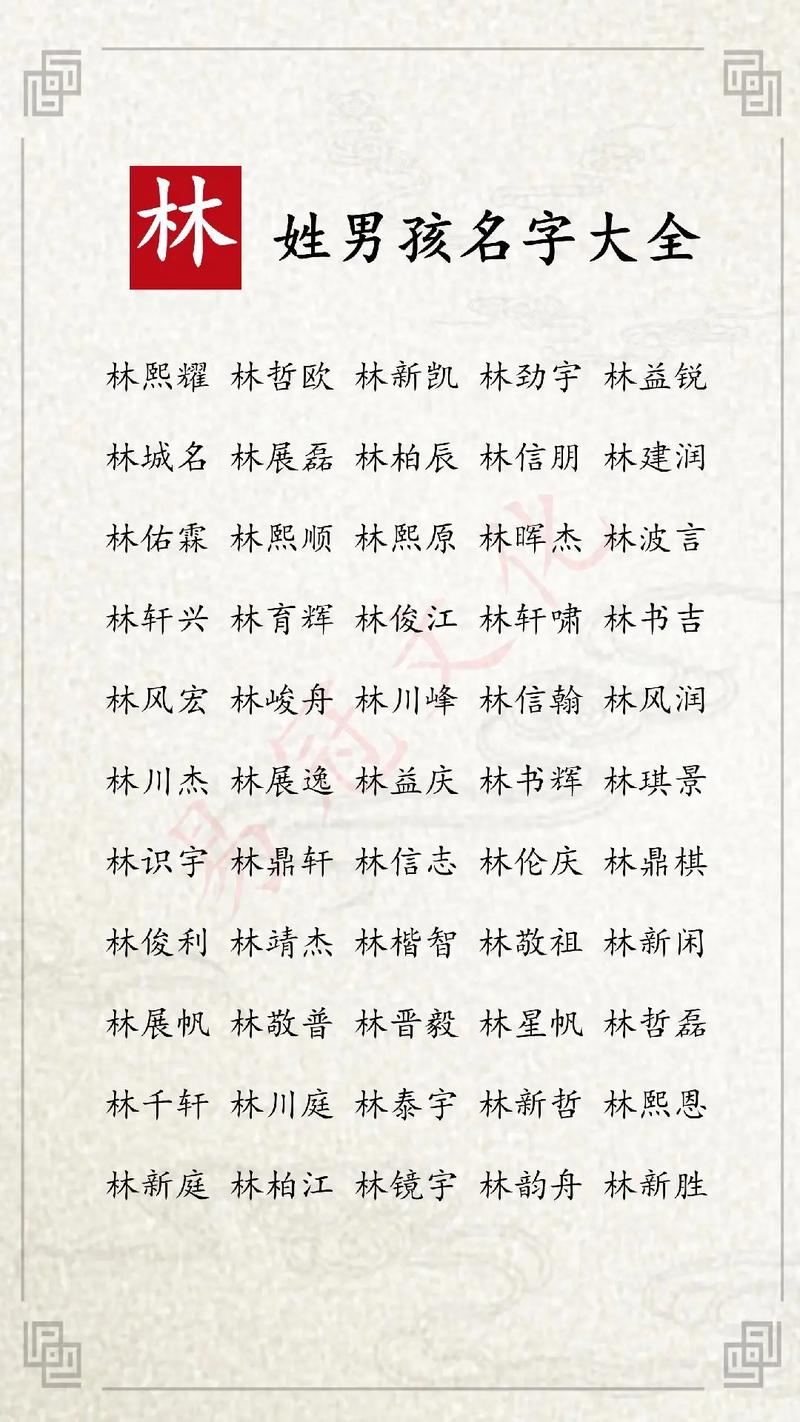 林 姓男孩名字大全
林熙耀 林哲欧 林新凯 林劲宇 林益锐
林城名 林展磊 林柏辰 林信朋 林建润
林佑霖 林熙顺 林熙原 林晖杰 林波言
林轩兴 林育辉 林俊江 林轩啸 林书吉
林风宏 林峻舟 林川峰 林信翰 林风润
林川杰 林展逸 林益庆 林书辉 林琪景
林识宇 林鼎轩 林信志 林伦庆 林鼎棋
林俊利 林靖杰 林楷智 林敬祖 林新闲
林展帆 林敬普 林晋毅 林星帆 林哲磊
林千轩 林川庭 林泰宇 林新哲 林熙恩
林新庭 林柏江 林镜宇 林韵舟 林新胜
易冠文化